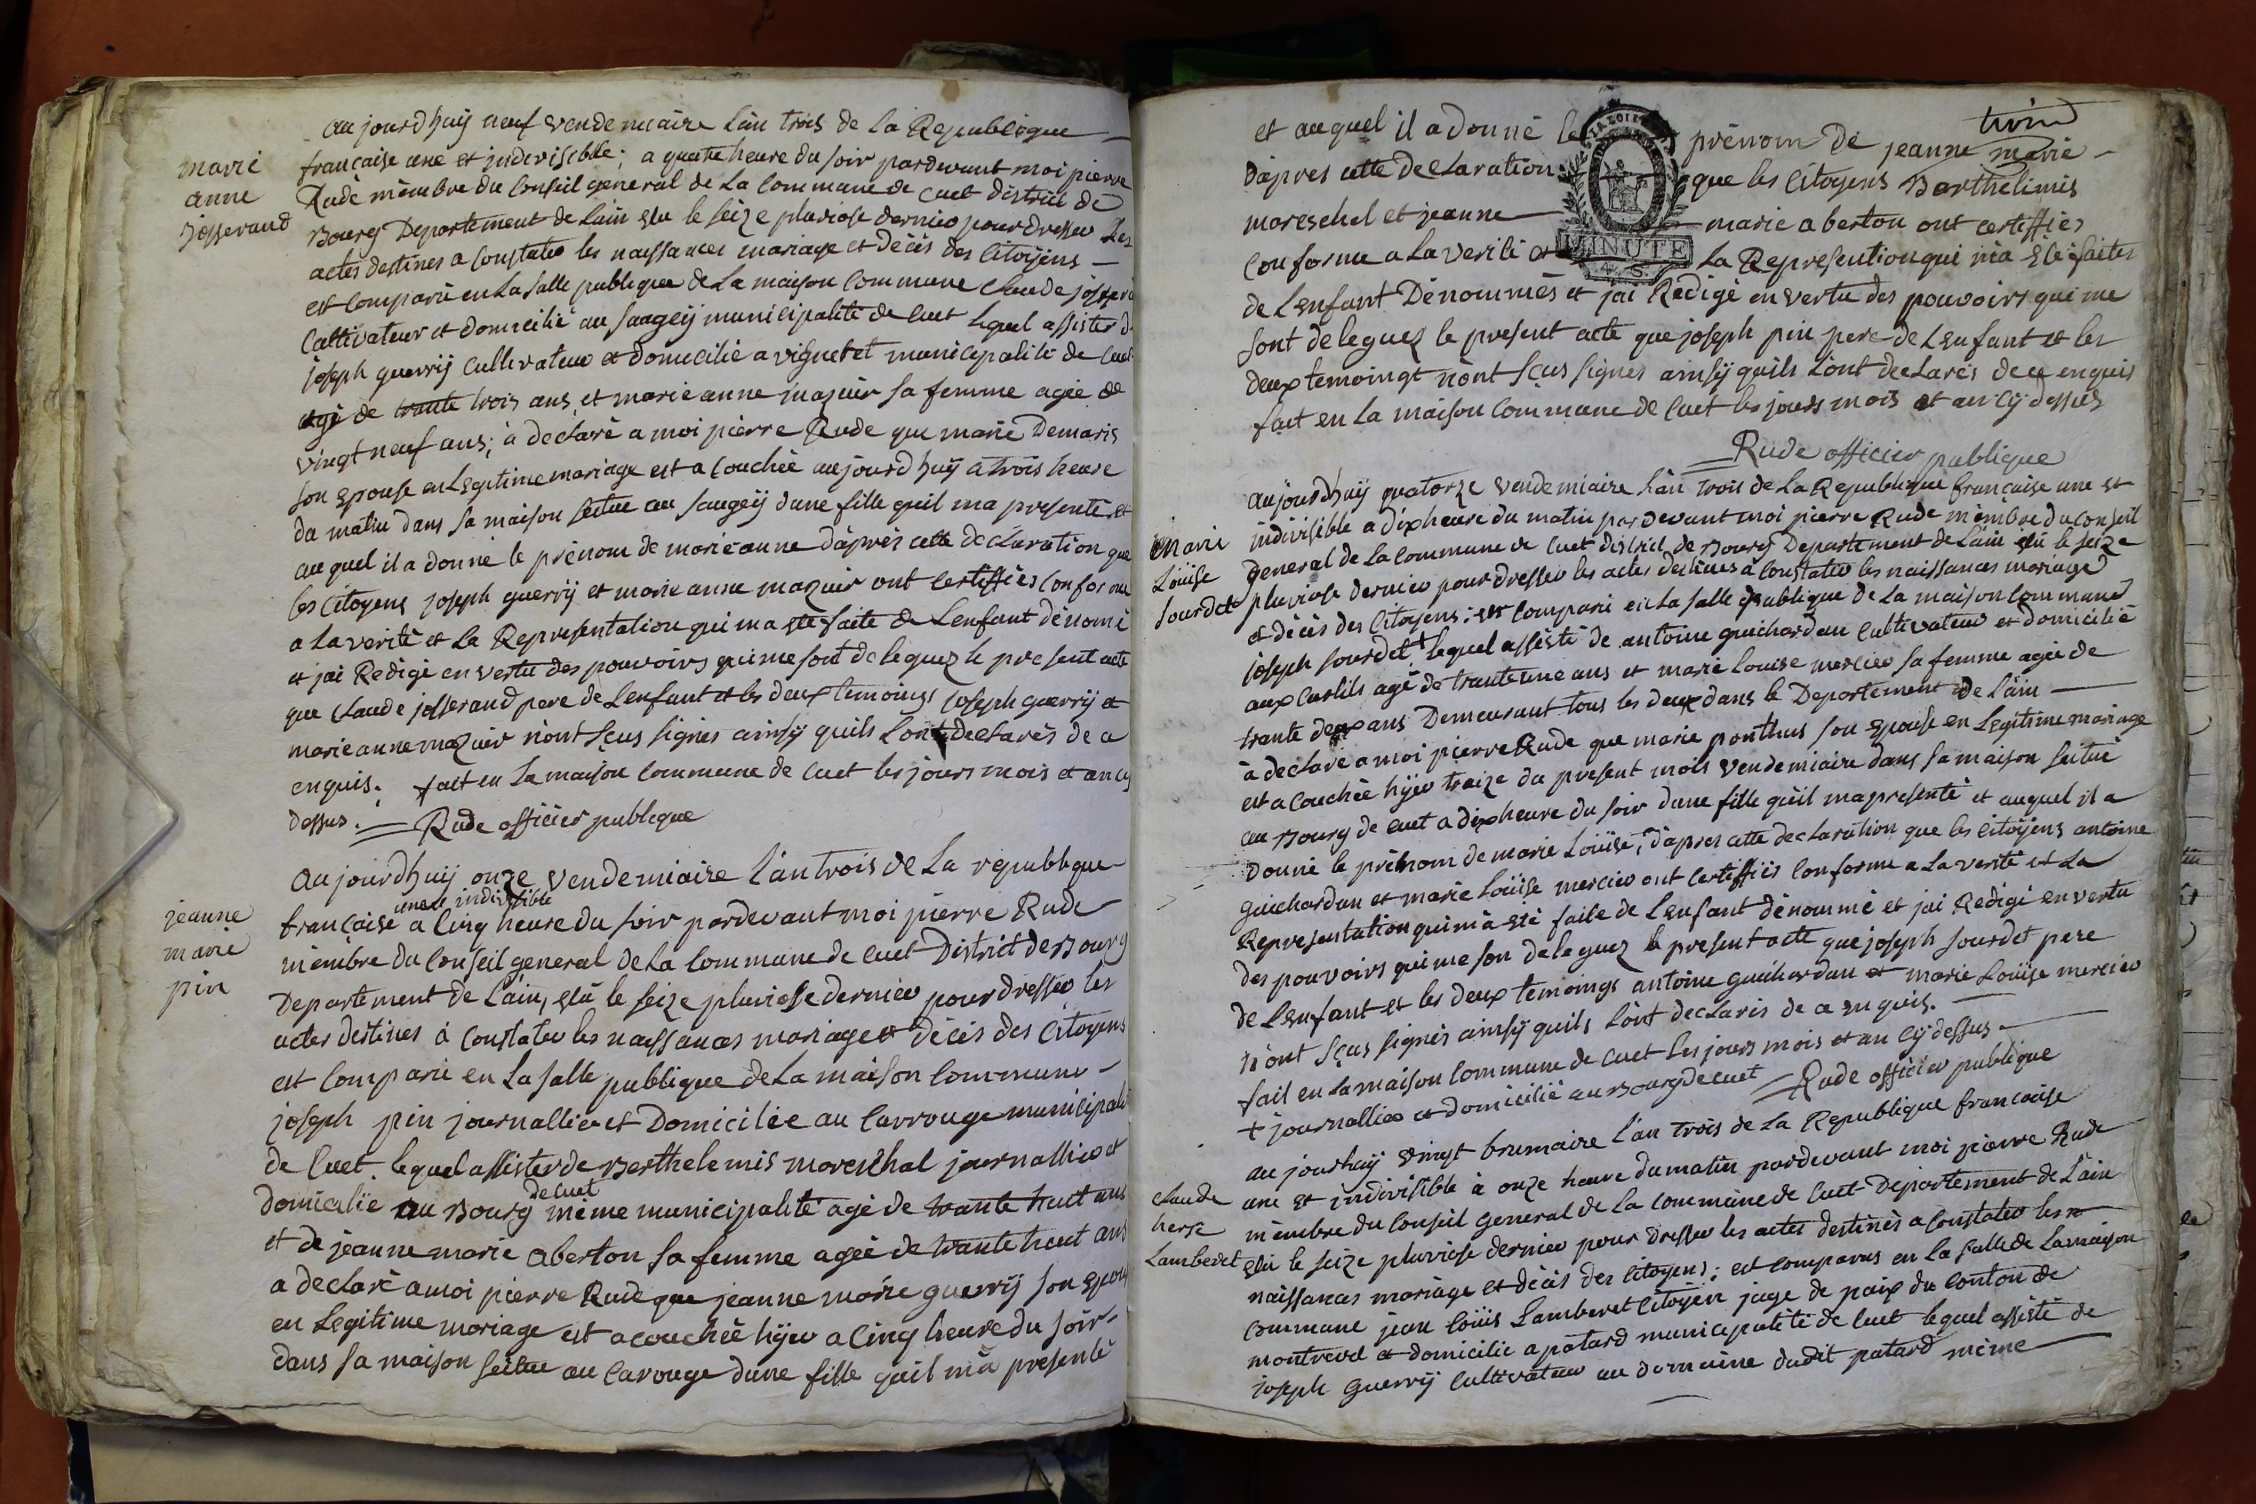 marie
anne
josserand
aujourdhuij neuf vendemiaire lan trois de la Republique
française une et indivisible; a quatre heure du soir pardevant moi pierre
Rude mémbre du Conseil general de La Commune de Cuet district de
Bourg Departement de lain elu le seize pluviose dernier pour dresser les
actes destines a Constater les naissances mariage et décès des Citoÿens
est Comparû en La salle publique de La maison Commune Claude josser
Cultivateur et domicilié au saugeÿ municipalité de Cuet lequel assister d
joseph guerrij Cultivateur et domicilié a vignetet municipalité de Cuet
agé de trante trois ans, et marie anne mazuir sa femme agée de
vingt neuf ans; à declaré a moi pierre Rude que marie Demaris
son Epouse en Legitime mariage est a Couchée aujourdhuij a trois heure
du matin dans sa maison scitue au saugeij dune fille quil ma presenté et
auquel il a donné le prénom de marie anne daprès cette declaration que
les Citoyens joseph guerrij et marie anne mazuir ont Certiffiés Conforme
a La verité et La Representation qui ma eté faite de Lenfant dénomé
et jai Redigé en vertu des pouvoirs qui me sont deleguez le present acte
que Claude josserand pere de Lenfant et les deux temoings joseph guerrij et
marie anne mazuir nont sçus signés ainsij quils Lont declarés de ce
enquis. fait en La maison Commune de Cuet les jours mois et an cij
dessus. Rude officier publique
jeanne
marie
pin
aujourdhuij onze vendemiaire lan trois de La republique
une et indivisible
française a Cinq heure du soir pardevant moi pierre Rude
mémbre du Conseil general de La Commune de Cuet District de Bourg
Departement de Lain, elû le seize pluviose dernier pour dresser les
actes destines à Constater les naissances mariage et décès des Citoyens
est Comparû en La salle publique de La maison Commune
joseph pin journallier et Domicilée au Carrouge municipali
de Cuet lequel assister de Berthelemis mareschal journallier et
de Cuet
domicilié au Bourg même municipalité agé de trante huit ans
et de jeanne marie aberton sa femme agée de trante huit ans
a declaré a moi pierre Rude que jeanne marie guerrij son epous
en Legitime mariage est a couchée hÿer a Cinq heure du soir
dans sa maison scitue au Carouge dune fille quil mà presenté
et auquel il a donné le prénom de jeanne marie
LA LOI
MINUTE
4. S.
dapres cette declaration que les Citoyens Berthelimis
mareschel et jeanne marie aberton ont certiffiés
Conforme a La verité et La Represention qui mà eté faites
de Lenfant Dénommés et jai Redigé en vertu des pouvoirs qui me
sont deleguez le present acte que joseph pin pere de Lenfant et les
deux temoingt nont sçus signés ainsij quils Lont declarés de ce enquis
fait en La maison Commune de Cuet les jours mois et an cij dessus
Rude officier publique
marie
Loüise
sourdet
aujourdhuij quatorze vendemiaire lan trois de La Republique française une et
indivisible a dix heure du matin par devant moi pierre Rude mémbre du conseil
general de La Commune de Cuet district de Bourg Departement de Lain elû le seize
pluviose dernier pour dresser les actes destines à Constater les naissances mariage
et décès des Citoyens; est Comparû en La salle publique de La maison Commune
joseph sourdet + lequel assisté de antoine guichardan Cultivateur et domicilié
aux Curtils agé de trante une ans et marie Louise mercier sa femme agée de
trante deux ans Demeurant tous les deux dans le Departement de Lain
à declaré a moi pierre Rude que marie ponthus son epouse en Legitime mariage
est a Couchée hÿer traize du present mois vendemiaire dans sa maison scitué
au Bourg de Cuet a dix heure du soir dune fille quil ma presenté et auquel il a
donné le prénom de marie Loüise, dapres cette declaration que les Citoÿens antoine
guichardan et marie Loüise mercier ont Certiffiés Conforme a La verité et La
Representation qui mà eté faite de Lenfant dénommé et jai Redigé en vertu
des pouvoirs qui me son deleguez le present acte que joseph sourdet pere
de Lenfant et les deux temoings antoine guichardan et marie Loüise mercier
nont sçus signés ainsij quils Lont declarés de ce enquis.
fait en La maison Commune de Cuet les jours mois et an cij dessus
+ journallier et domicilié au Bourg de Cuet Rude officier publique
Claude
herse
Lamberet
au jourhuij vingt brumaire lan trois de La Republique francaise
une et indivisible à onze heure du matin pardevant moi pierre Rude
mémbre du Conseil general de La Commune de Cuet Departement de Lain
elû le seize pluviose dernier pour dresser les actes destinés a Constater les
naissances mariage et décès des Citoyens; est Comparus en La salle de La maison
Commune jean Loüis Lamberet Citoÿen juge de paix du Conton de
montrevel et domicilié a patard municipalité de Cuet lequel assisté de
joseph guerrij Cultivateur au domaine dudit patard même